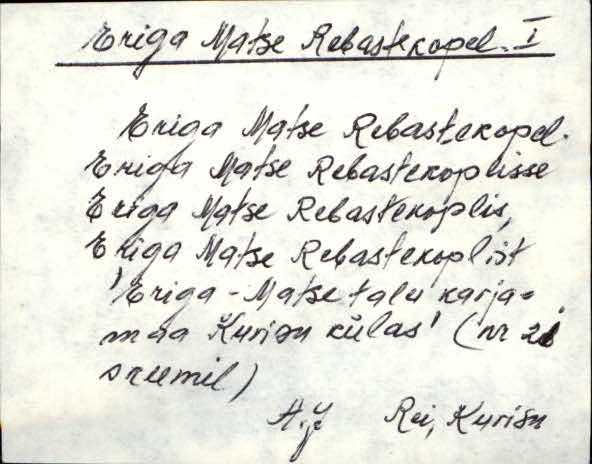 Eriga Matse Rebastekopel. I
Eriga Matse Rebastekopel.
Eriga Matse Rebastekoplisse
Eriga Matse Rebastekoplis,
Eriga Matse Rebastekoplist
'Eriga-Matse talu karja-
maa Kurisu külas' (nr 21
skeemil)
Rei, Kurisu